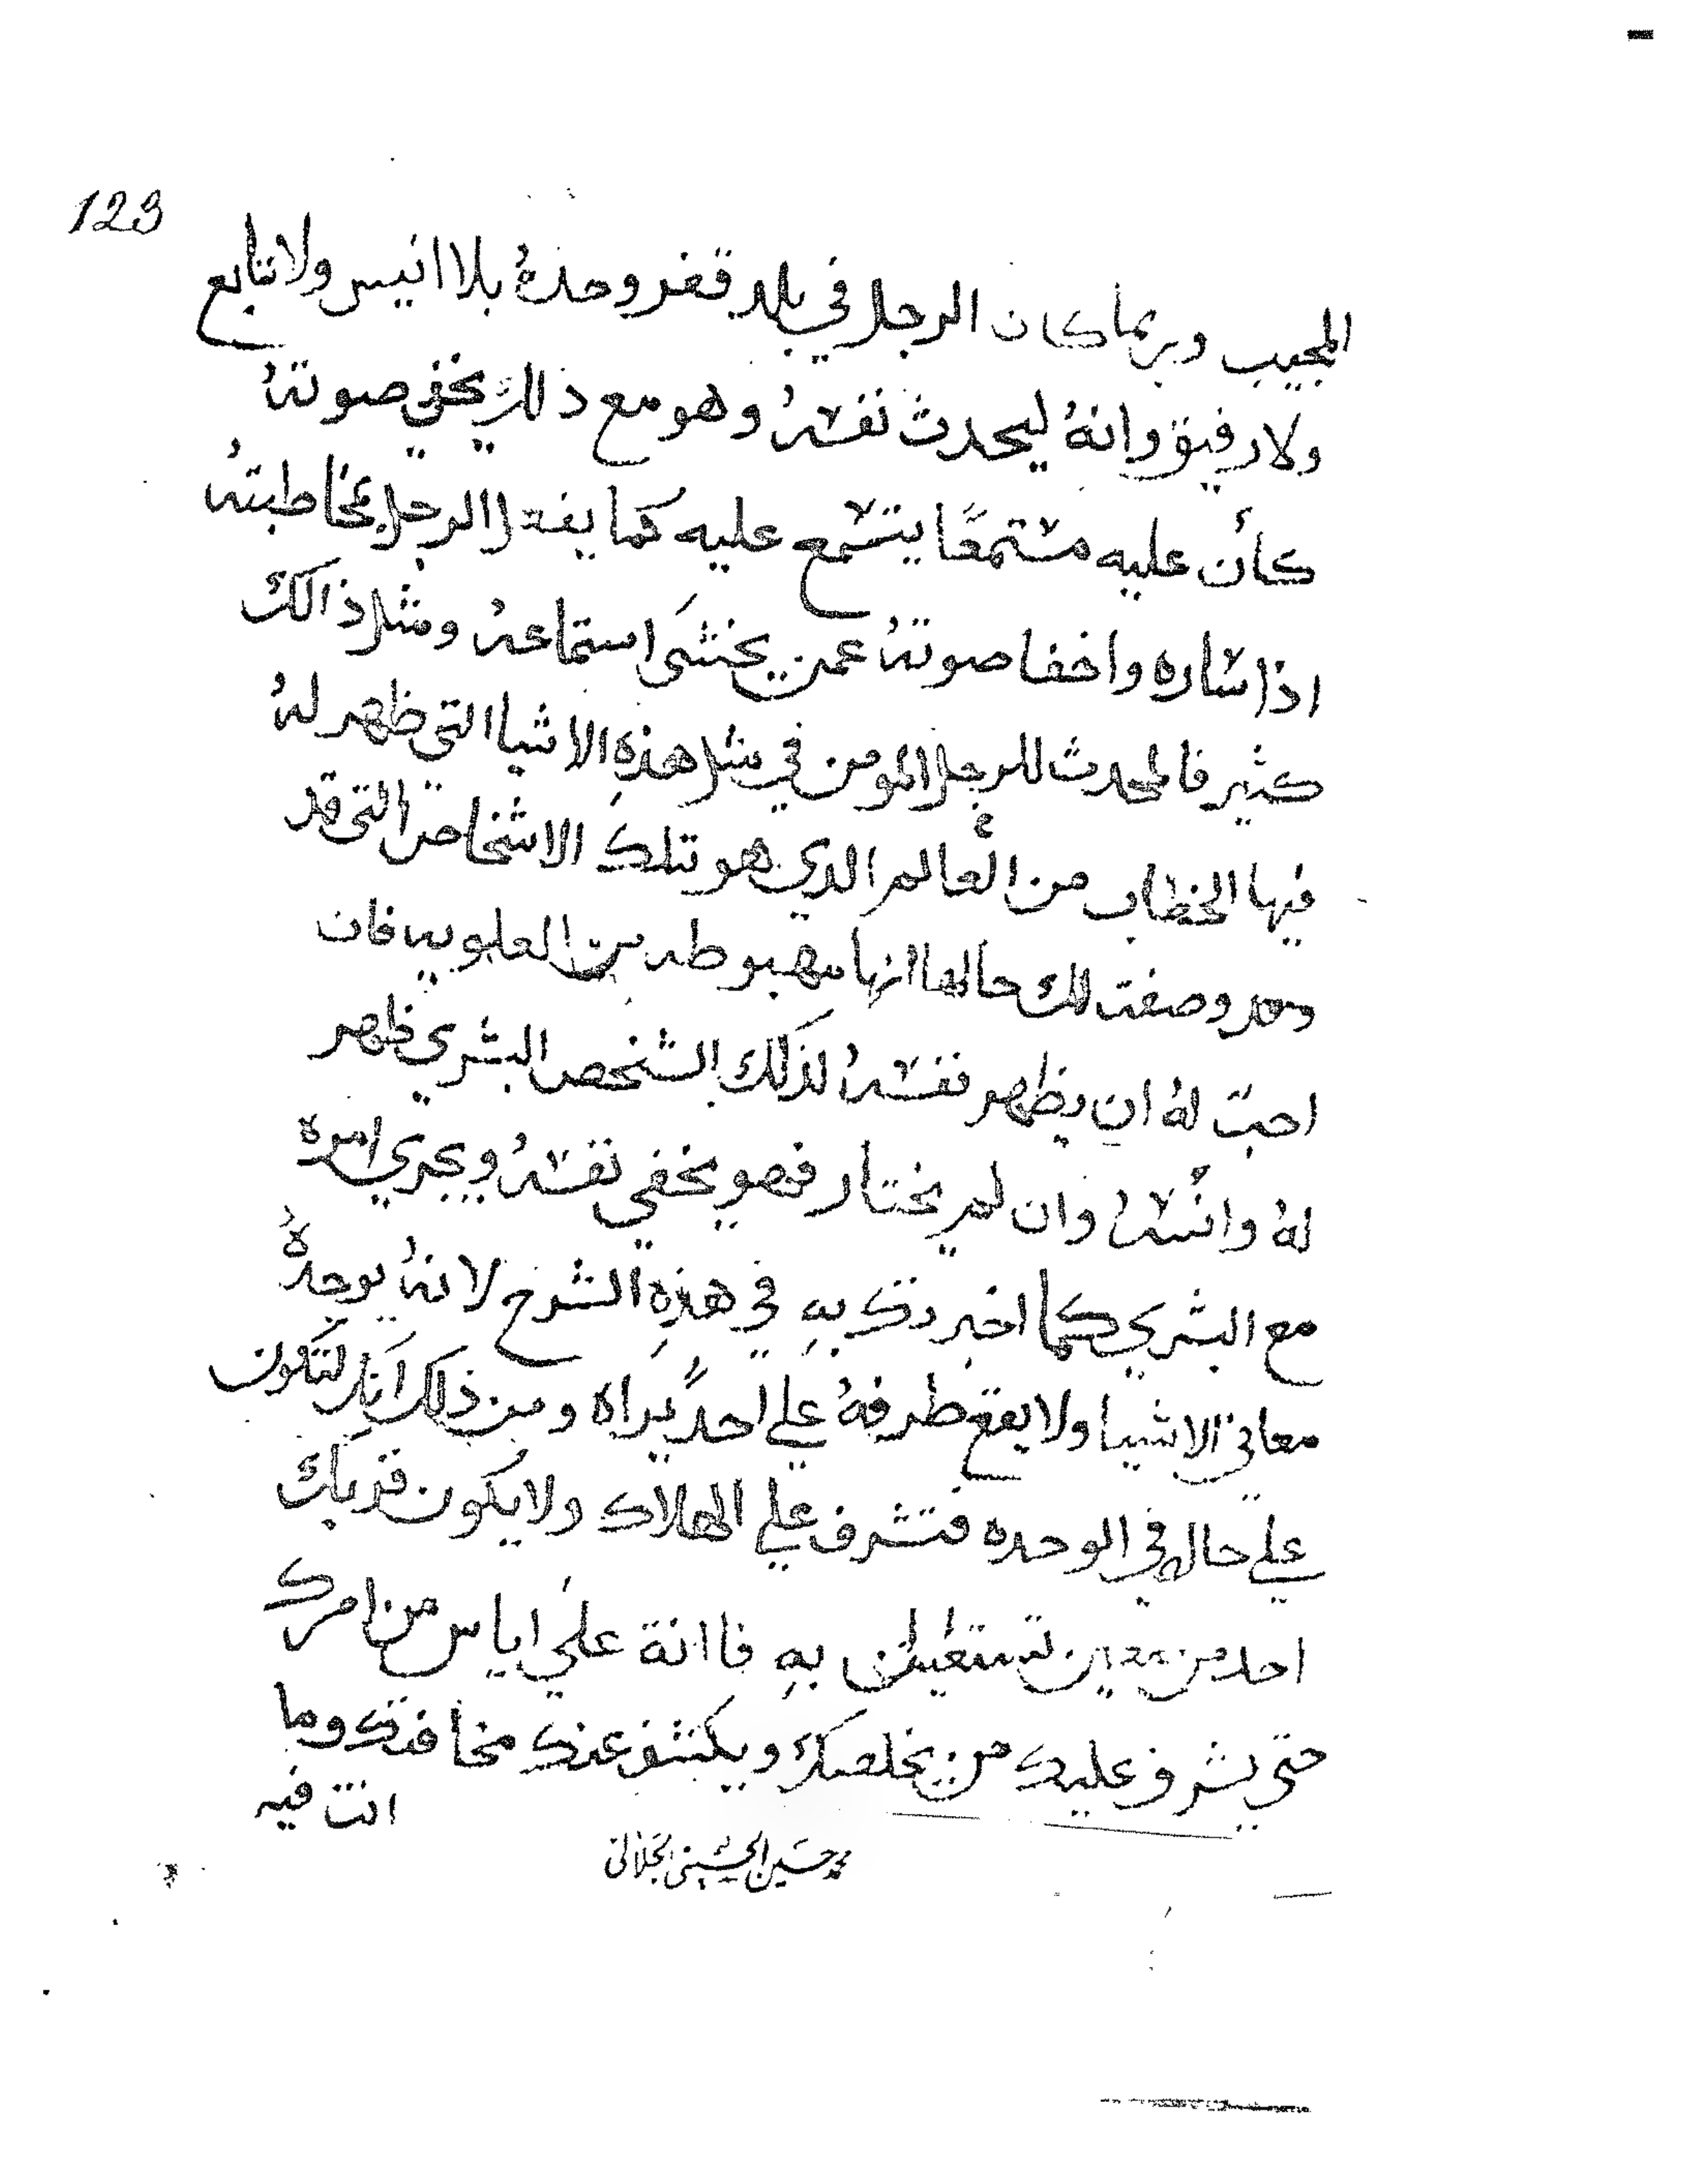 123
المجيب وربما كان الرجل في بلد قفر وحدهُ بلا انيس ولا تتابع
ولا رفيق وانهُ ليحدث نفسهُ وهو مع ذلك يخفي صوتهُ
كأن عليه مستمعًا يتسمع عليه كما يفعل الرجل بمخاطبتهُ
اذا ساره واخفا صوتهُ عمن يخشَى استماعهُ ومثل ذالك
كثير فالمحدث للرجل المومن في مثل هذهِ الاشيا التي ظهر لهُ
فيها الخطاب من العالم الدي هو تلك الاشخاص التي قد
وصفت لك حالها انها مهبوطه من العلويه فان
احبّ لهُ ان يظهر نفسهُ لذلك الشخص البشري ظهر
لهُ وانسهُ وان لم يختار فهو يخفي نفسهُ ويجري امره
مع البشري كما اخبرتك بهِ في هذهِ الشرح لانهُ يوجدهُ
معاني الاشيا ولا يقع طرفهُ علي احدً يراه ومن ذلك انك لتكون
علي حال في الوحده فتشرف علي الهلاك ولا يكون قربك
احد من تستغيث بهِ فاانة علي اياس من امرك
حتي يشرف عليك من يخلصك ويكشف عنك مخافتك وما
انت فيه
محمد حسين الحسيني الجلالي